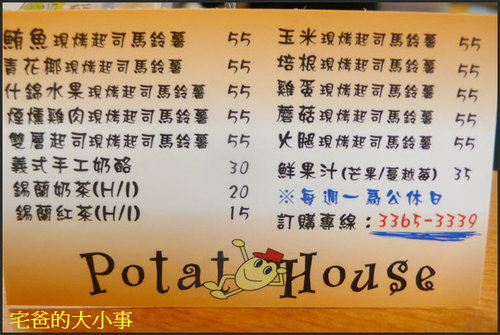 鮪魚現烤起司馬鈴薯 55
青花椰現烤起司馬鈴薯 55
什錦水果現烤起司馬鈴薯 55
煙燻雞肉現烤起司馬鈴薯 55
雙層起司現烤起司馬鈴薯 55
義式手工奶酪 30
錫蘭奶茶(H/I) 20
錫蘭紅茶(H/I) 15
玉米現烤起司馬鈴薯 55
培根現烤起司馬鈴薯 55
雞蛋現烤起司馬鈴薯 55
蘑菇現烤起司馬鈴薯 55
火腿現烤起司馬鈴薯 55
鮮果汁(芒果/蔓越莓) 35
※每週一為公休日
訂購專線：3365-3339
Potato House
宅爸的大小事